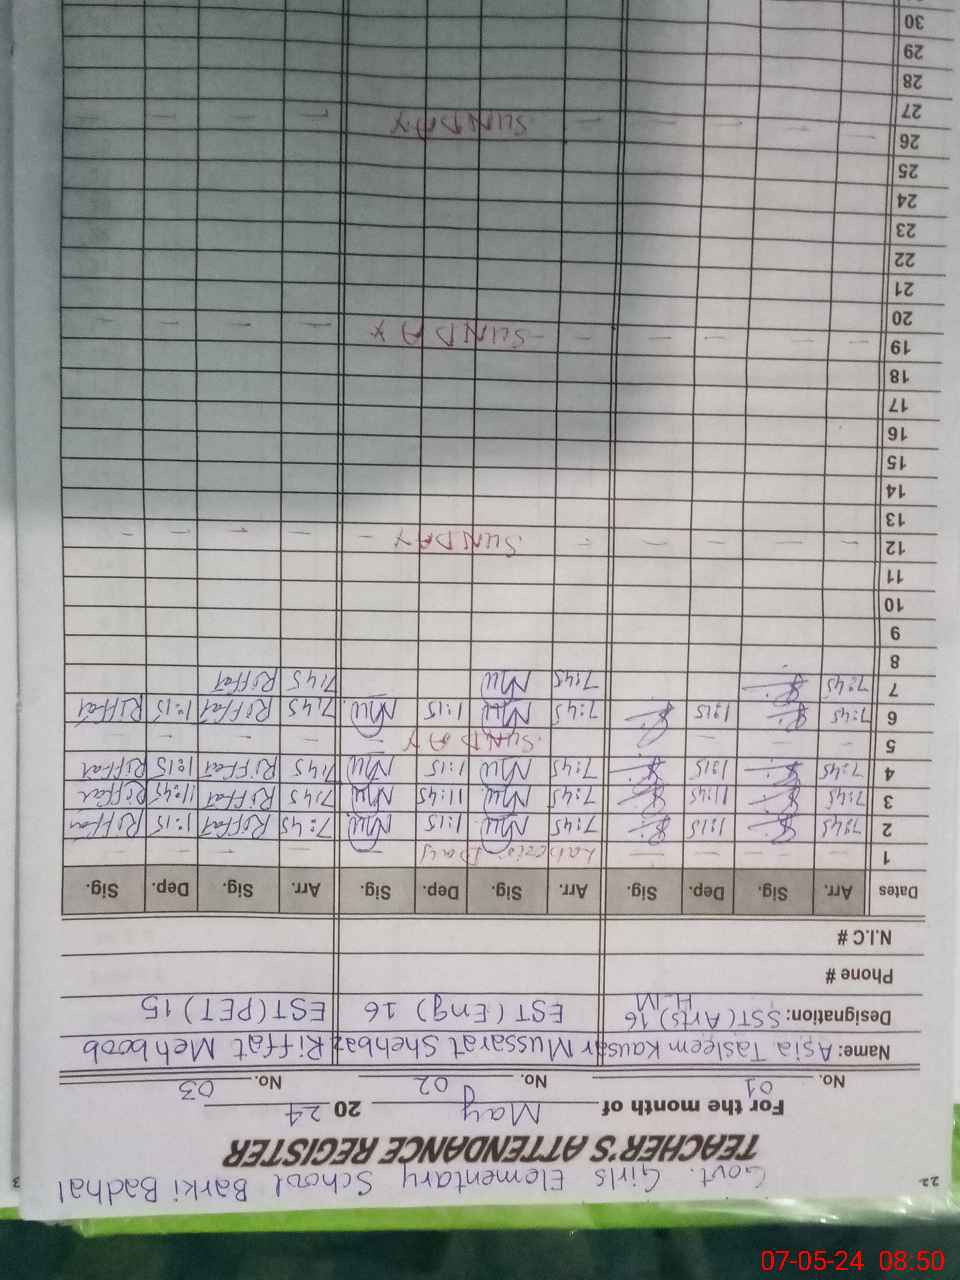 22
Govt. Girls Elementary School Barki Badhal
TEACHER'S ATTENDANCE REGISTER
For the month of May 2024
No. 01 No. 02 No. 03
Name: Asia Tasleem Kausar Mussarat Shehbaz Riffat Mehboob
Designation: SST (Arts) 16 EST (Eng) 16 EST (PET) 15
H.M
Phone #
N.I.C #
Dates Arr. Sig. Dep. Sig. Arr. Sig. Dep. Sig. Arr. Sig. Dep. Sig.
1 — — — — Day — — — —
2 7:45 1:15 7:45 1:15 7:45 Riffat 1:15 Riffat
3 7:45 11:45 7:45 11:45 7:45 Riffat 11:45 Riffat
4 7:45 1:15 7:45 1:15 7:45 Riffat 1:15 Riffat
5 — — — — SUNDAY — — — —
6 7:45 1:15 7:45 1:15 7:45 Riffat 1:15 Riffat
7 7:45 7:45 7:45 Riffat
8
9
10
11
12 — — — — — SUNDAY — — — — —
13
14
15
16
17
18
19 — — — — — SUNDAY — — — —
20
21
22
23
24
25
26 — — — — — SUNDAY — — — —
27
28
29
30
07-05-24 08:50